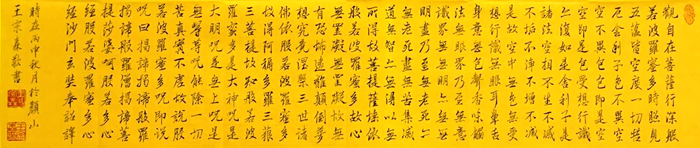 觀自在菩薩行深般
若波羅蜜多時照見
五蘊皆空度一切苦
厄舍利子色不異空
空不異色色即是空
空即是色受想行識
亦復如是舍利子是
諸法空相不生不滅
不垢不淨不增不減
是故空中無色無受
想行識無眼耳鼻舌
身意無色聲香味觸
法無眼界乃至無意
識界無無明亦無無
明盡乃至無老死亦
無老死盡無苦集滅
道無智亦無得以無
所得故菩提薩埵依
般若波羅蜜多故心
無罣礙無罣礙故無
有恐怖遠離顛倒夢
想究竟涅槃三世諸
佛依般若波羅蜜多
故得阿耨多羅三藐
三菩提故知般若波
羅蜜多是大神呪是
大明呪是無上呪是
無等等呪能除一切
苦真實不虛故說般
若波羅蜜多呪即說
呪曰揭諦揭諦般羅
揭諦般羅僧揭諦菩
提薩婆呵般若波羅蜜多心
經沙門玄奘奉詔譯
時在丙申秋月於山
王宗敬書